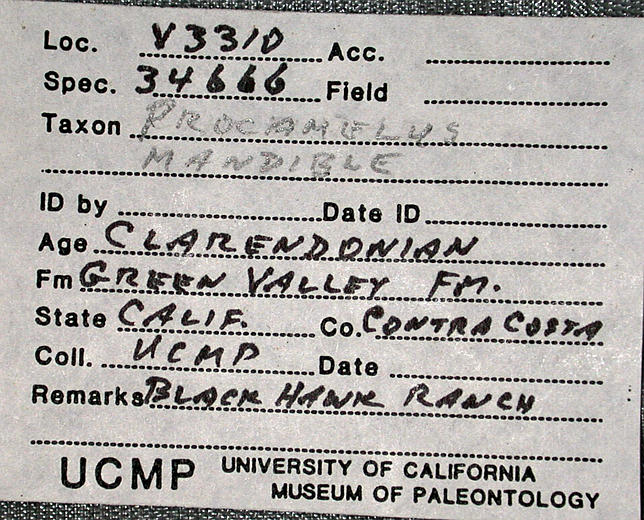 Loc. V3310 Acc.
Spec. 34666 Field
Taxon PROCAMELUS
MANDIBLE
ID by Date ID
Age CLARENDONIAN
Fm GREEN VALLEY FM.
State CALIF. Co. CONTRA COSTA
Coll. UCMP Date
Remarks BLACK HAWK RANCH
UCMP UNIVERSITY OF CALIFORNIA
MUSEUM OF PALEONTOLOGY